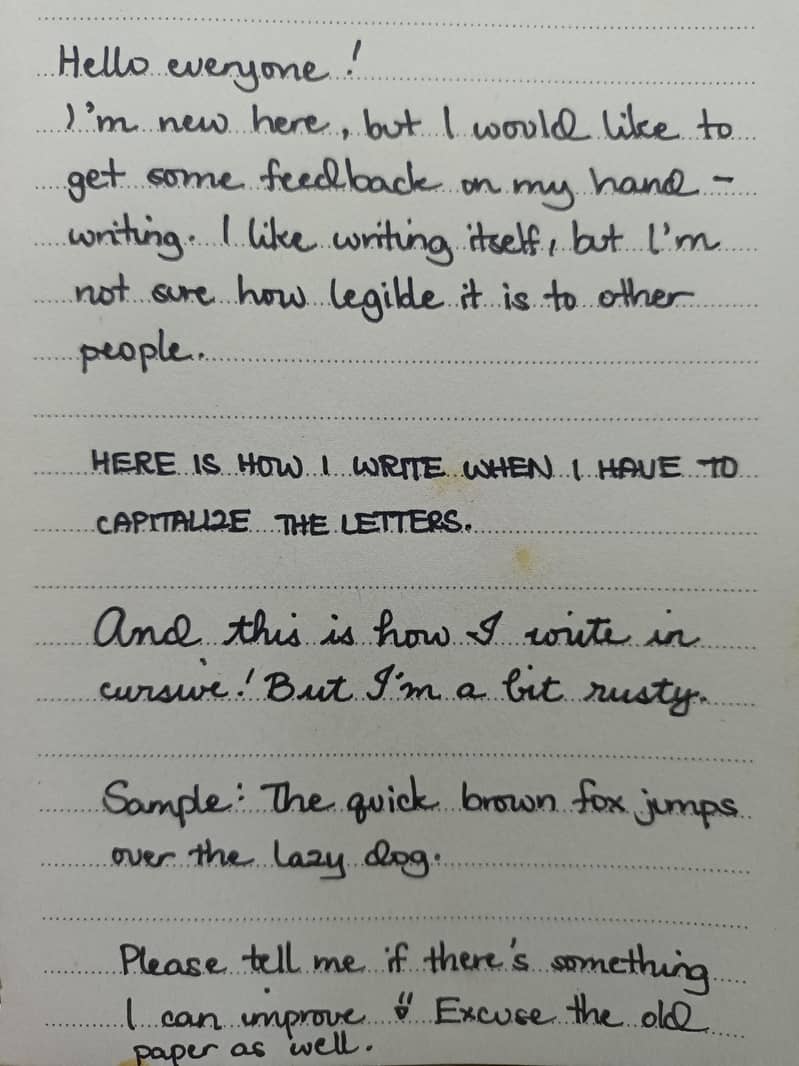 Hello everyone!
I'm new here, but I would like to
get some feedback on my hand -
writing. I like writing itself, but I'm
not sure how legible it is to other
people.
HERE IS HOW I WRITE WHEN I HAVE TO
CAPITALIZE THE LETTERS.
And this is how I write in
cursive! But I'm a bit rusty.
Sample: The quick brown fox jumps
over the lazy dog.
Please tell me if there's something
I can improve Excuse the old
paper as well.